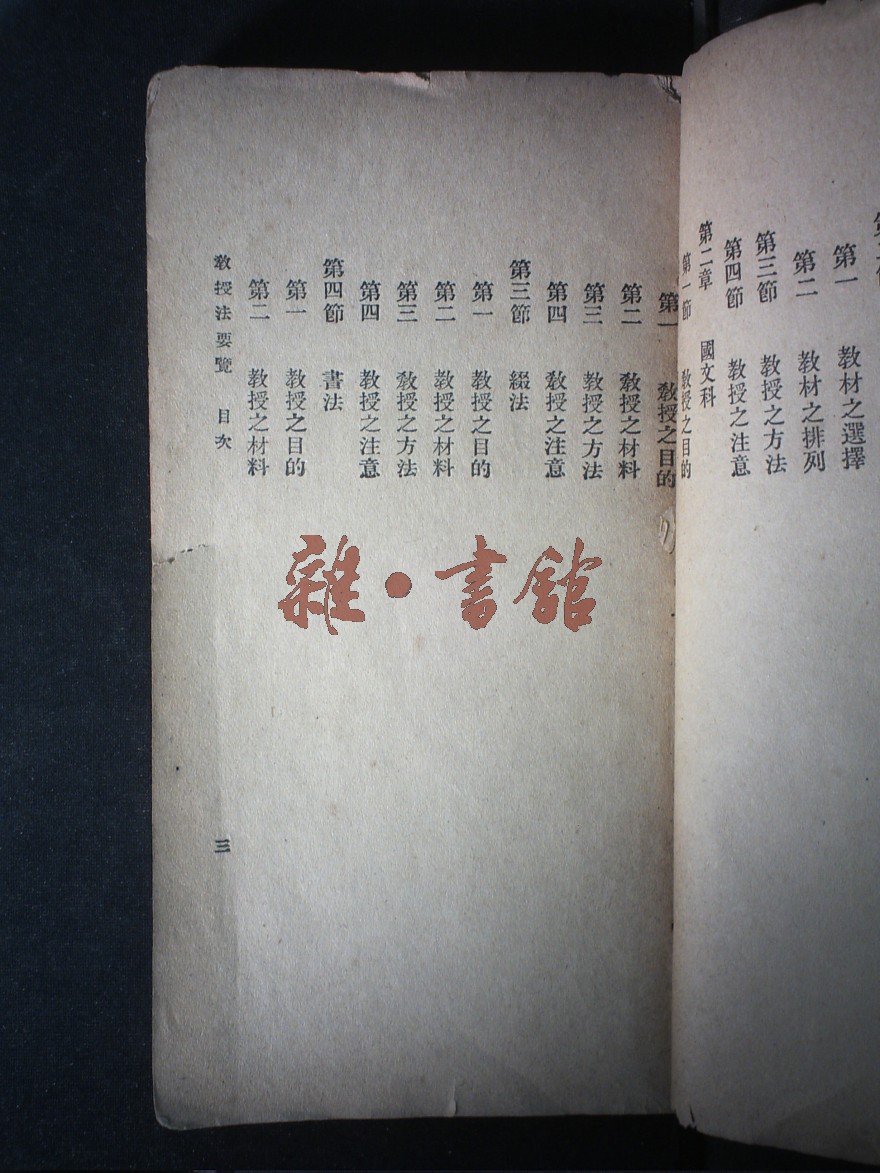 第一 教材之選擇
第二 教材之排列
第三節 教授之方法
第四節 教授之注意
第二章 國文科
第一節 教授之目的
第一 教授之目的
第二 教授之材料
第三 教授之方法
第四 教授之注意
第三節 綴法
第一 教授之目的
第二 教授之材料
第三 教授之方法
第四 教授之注意
第四節 書法
第一 教授之目的
第二 教授之材料
教授法要覽 目次
三
雜·書館